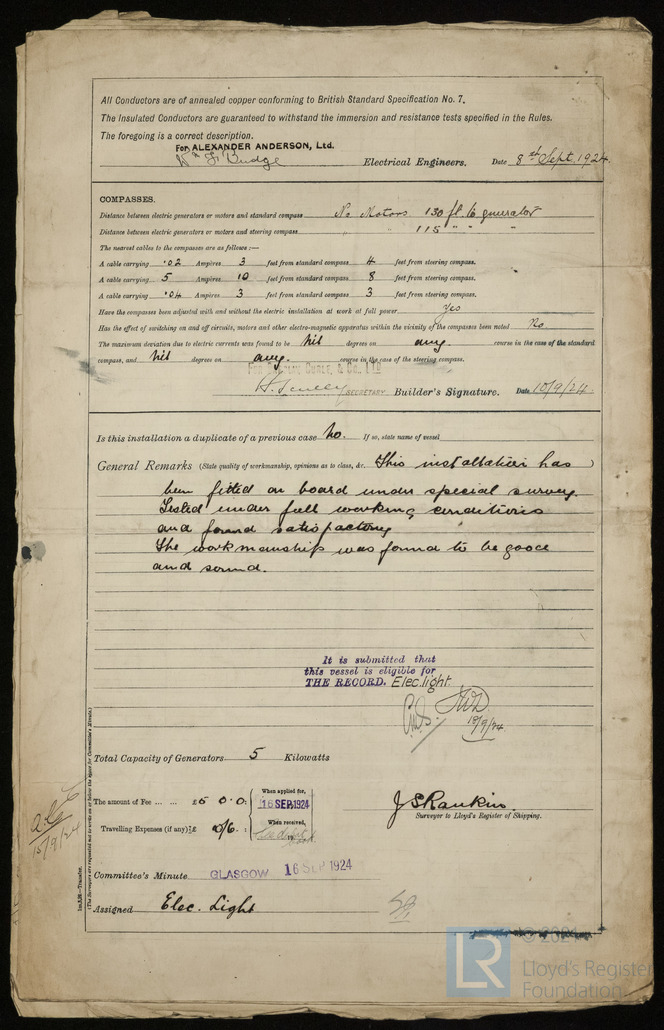 All Conductors are of annealed copper conforming to British Standard Specification No. 7.
The Insulated Conductors are guaranteed to withstand the immersion and resistance tests specified in the Rules.
The foregoing is a correct description.
For ALEXANDER ANDERSON, Ltd.
Wm F. Dudge Electrical Engineers. Date 8th Sept. 1924.
COMPASSES.
Distance between electric generators or motors and standard compass No Motors 130 ft. to generator
Distance between electric generators or motors and steering compass " " 115 " " "
The nearest cables to the compasses are as follows:—
A cable carrying .02 Ampères 3 feet from standard compass 4 feet from steering compass.
A cable carrying 5 Ampères 10 feet from standard compass 8 feet from steering compass.
A cable carrying .04 Ampères 3 feet from standard compass 3 feet from steering compass.
Have the compasses been adjusted with and without the electric installation at work at full power Yes
Has the effect of switching on and off circuits, motors and other electro-magnetic apparatus within the vicinity of the compasses been noted No.
The maximum deviation due to electric currents was found to be Nil degrees on any. course in the case of the standard
compass, and Nil degrees on any. course in the case of the steering compass.
CURLE, & Co., LTD
SECRETARY Builder's Signature. Date 10/9/24.
Is this installation a duplicate of a previous case No. If so, state name of vessel
General Remarks (State quality of workmanship, opinions as to class, &c. This installation has )
been fitted on board under special survey.
Tested under full working conditions
and found satisfactory
The workmanship was found to be good
and sound.
It is submitted that
this vessel is eligible for
THE RECORD. Elec. light.
18/9/24
Total Capacity of Generators 5 Kilowatts
The amount of Fee ... ... £5 0.0: When applied for, 16 SEP 1924
Travelling Expenses (if any) £ When received,
J S Rankin.
Surveyor to Lloyd's Register of Shipping.
Committee's Minute GLASGOW 16 SEP 1924
Assigned Elec. Light
15/9/24
(The Surveyors are requested not to write on or below the space for Committee's Minute.)
© 2021
LR
Lloyd's Register
Foundation